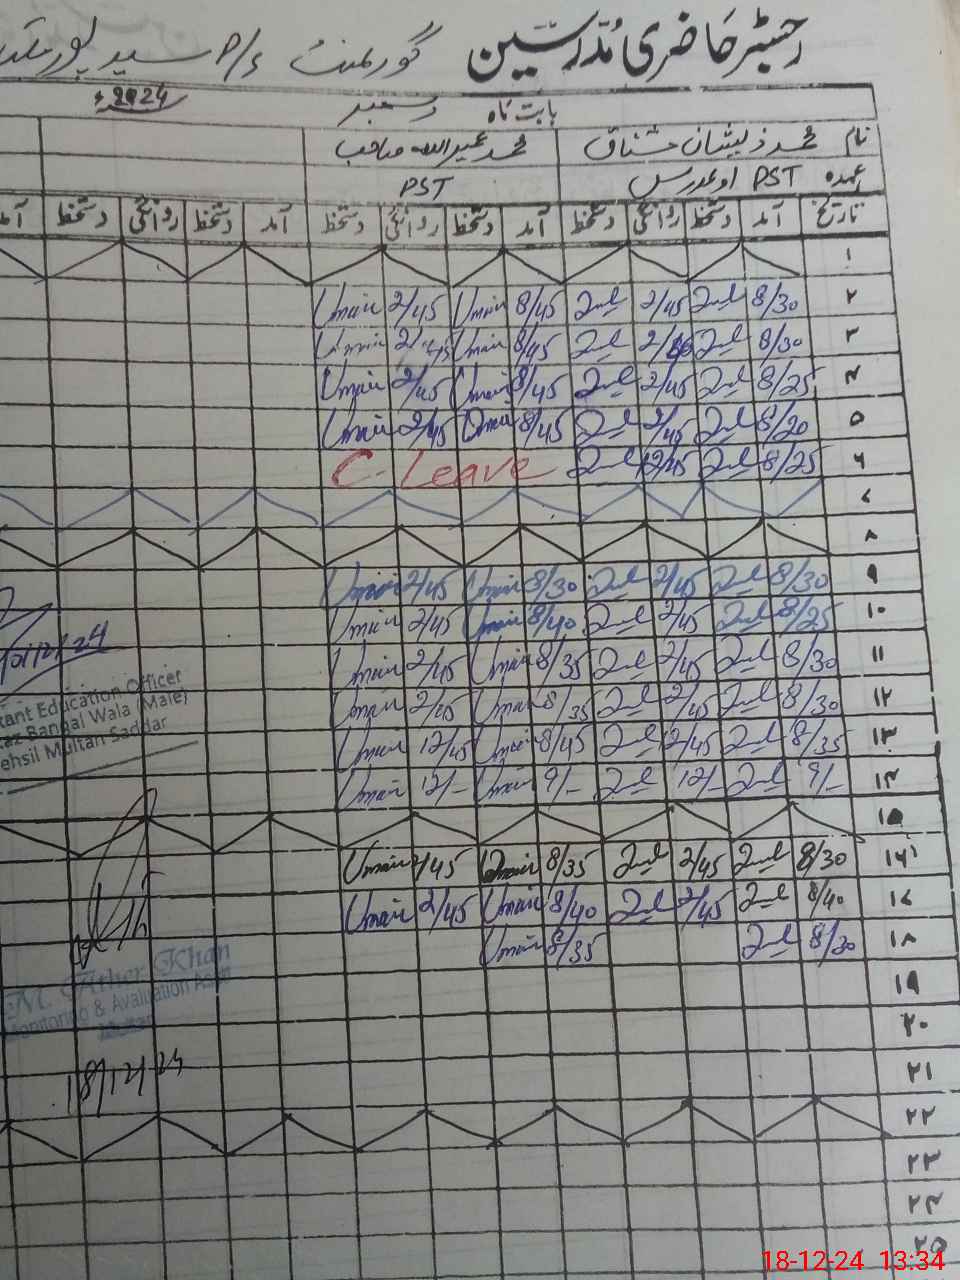 رجسٹر حاضری مدرسین گورنمنٹ P/S سید پور
بابت ماہ دسمبر 2024ء
نام محمد ذیشان مشتاق محمد عمیر اللہ صاحب
عہدہ PST اور مدرس PST
تاریخ آمد دستخط روانگی دستخط آمد دستخط روانگی دستخط آمد دستخط روانگی دستخط آمد
۱
۲ 8/30 2/45 8/45 Umair 2/45 Umair
۳ 8/30 8/45 Umair 2/45 Umair
۴ 8/25 2/45 8/45 Umair 2/45 Umair
۵ 8/20 2/45 8/45 Umair 2/45 Umair
۶ 8/25 12/45 C-Leave
۷
۸
۹ 8/30 2/45 8/30 Umair 2/45 Umair
۱۰ 8/25 2/45 8/40 Umair 2/45 Umair
۱۱ 8/30 2/45 8/35 Umair 2/45 Umair
۱۲ 8/30 2/45 8/35 Umair 2/45 Umair
۱۳ 8/35 12/45 8/45 Umair 12/45 Umair
۱۴ 9/- 12/- 9/- Umair 12/- Umair
۱۵
۱۶ 8/30 2/45 8/35 Umair 2/45 Umair
۱۷ 8/40 2/45 8/40 Umair 2/45 Umair
۱۸ 8/30 8/35 Umair
۱۹
۲۰
۲۱
۲۲
۲۳
۲۴
۲۵
12/24
tant Education Officer
az Bangal Wala (Male)
ehsil Multan Saddar
M. Ather Khan
onitoring & Avaluation Assit
Multan
18/12/24
18-12-24 13:34